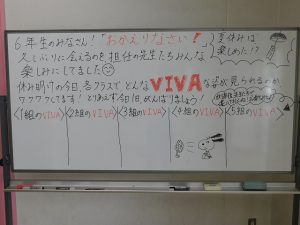 6年生のみなさん!「おかえりなさい!」
夏休みは
楽しめた!?
久しぶりに会えるのを担任の先生たちみんな
楽しみにしてました
休み明けの今日、各クラスで どんな VIVA な姿が見られるのか、
ワクワクしてます! とりあえず今日1日、がんばりましょう!
<1組のVIVA> <2組のVIVA> <3組のVIVA> <4組のVIVA> <5組のVIVA>